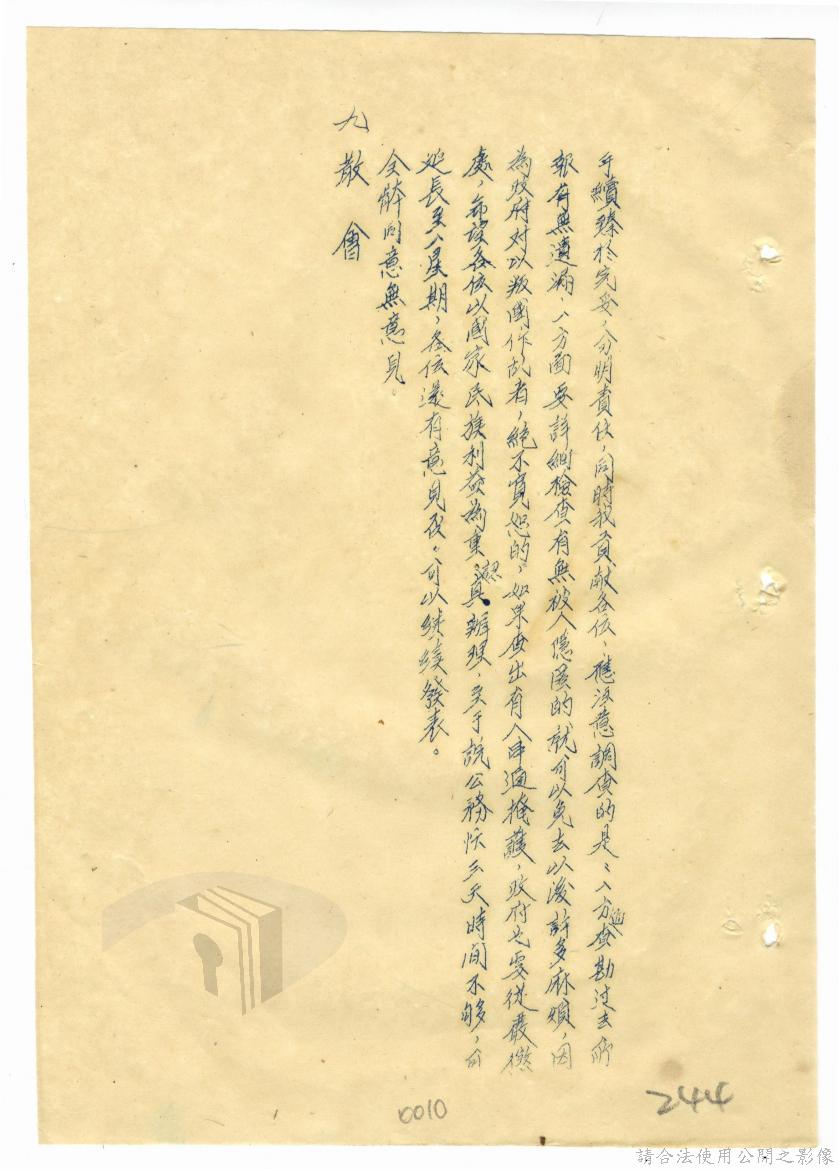 手續臻於完妥，分明責任，同時我貢献各位，應注意調查的是：一方面查勘过去所
報有無遺漏，一方面要詳細檢查有無被人隱匿的，就可以免去以後許多麻煩，因
為政府对以叛國作故者，絕不寬恕的，如果查出有人串通掩護，政府也要從嚴懲
處，希望各位以國家民族利益為重，認真辦理，至于說公務忙三天時间不够，可
延長至一星期，各位還有意見否。可以継续發表。
全體同意無意見。
九 散會
0010
244
請合法使用公開之影像